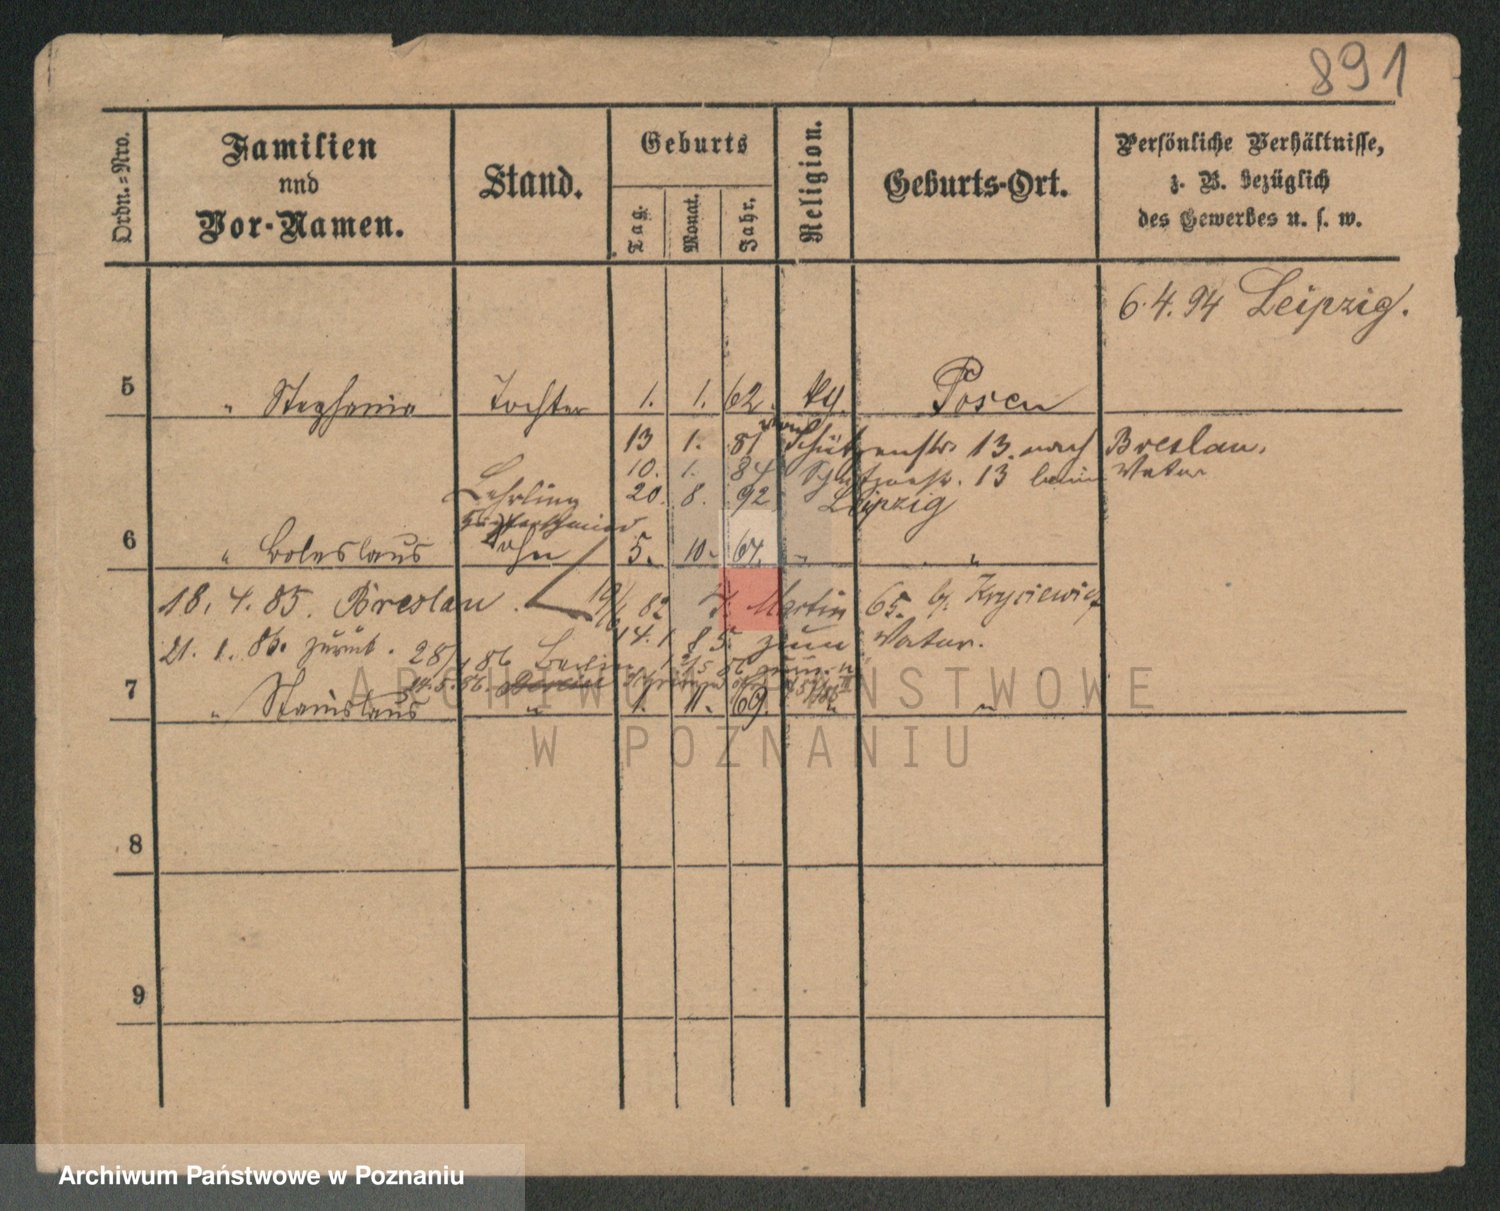 891
Ordn.-Nro.
Familien
und
Vor-Namen.
Stand.
Geburts
Tag.
Monat.
Jahr.
Religion.
Geburts-Ort.
Persönliche Verhältnisse,
z. B. bezüglich
des Gewerbes u. s. w.
6.4.94 Leipzig.
5 " Stephania Tochter 1. 1. 62. Posen
13 1. 81 Schützenstr. 13. nach Breslau.
10. 1. 84 13 beim Vater
Lehrling 20. 8. 92 Leipzig
6 " Boleslaus Sohn 5. 10. 67. " "
18. 4. 85. Breslau. 82 St. Martin 65. b.
21. 1. 86. zurück. 14. 1. 85. zum Vater.
28/1 86 Berlin
14. 5. 86. Berlin
7 " Stanislaus " 1. 11. 69. " "
8
9
ARCHIWUM PAŃSTWOWE
W POZNANIU
Archiwum Państwowe w Poznaniu